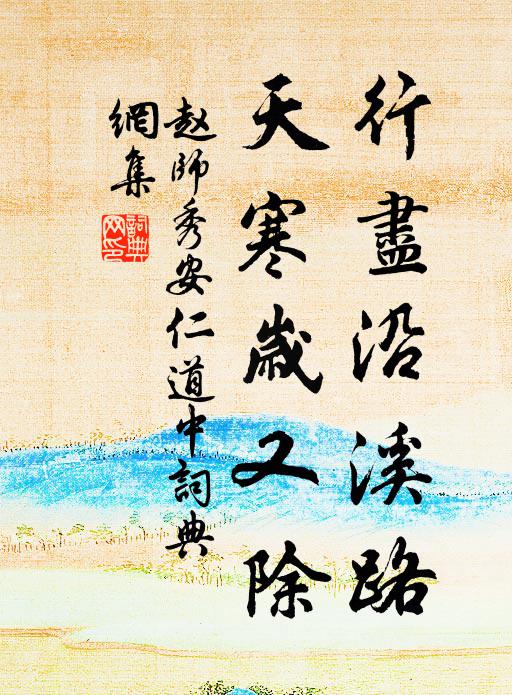 行盡沿溪路
天寒歲又除
赵師秀安仁道中詞典
網集
詞典
网印